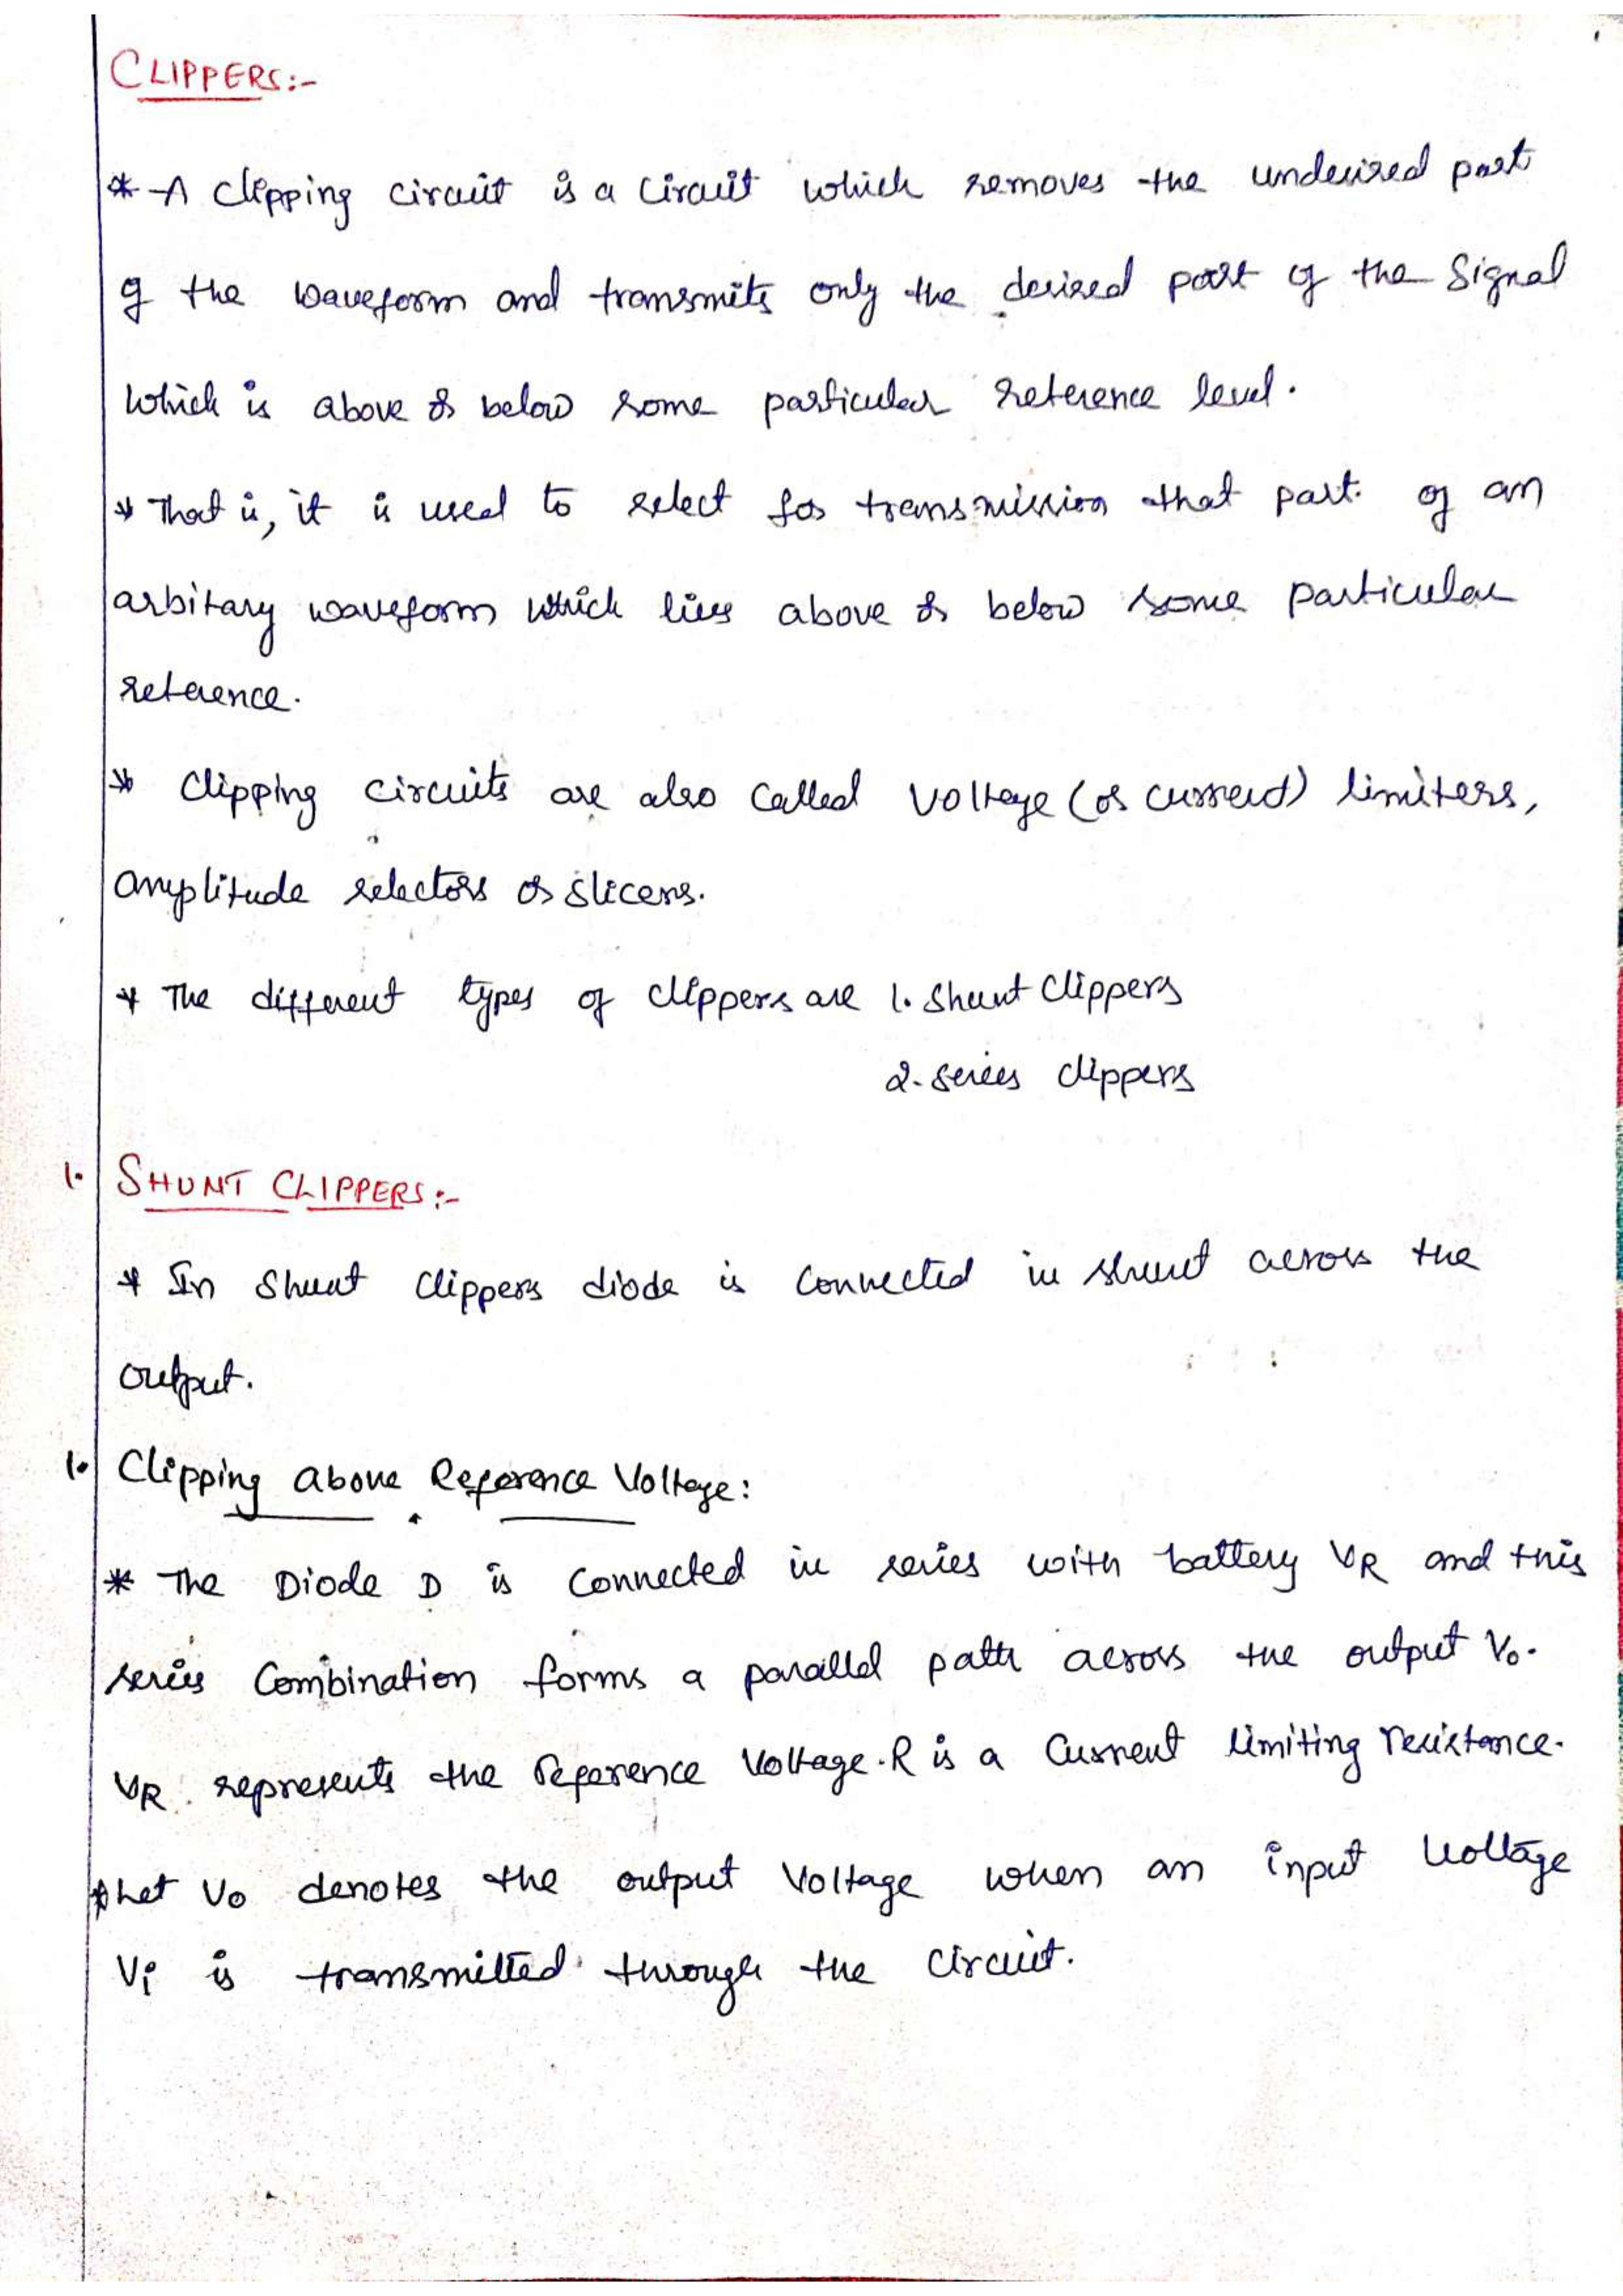 CLIPPERS:-
* A Clipping circuit is a circuit which removes the undesired part
of the waveform and transmits only the desired part of the Signal
which is above or below some particular reference level.
* That is, it is used to select for transmission that part of an
arbitary waveform which lies above or below some particular
reference.
* Clipping circuits are also called Voltage (or current) limiters,
amplitude selectors or slicers.
* The different types of clippers are 1. Shunt Clippers
2. Series clippers
1. SHUNT CLIPPERS:-
* In Shunt Clippers diode is connected in shunt across the
output.
1. Clipping above Reference Voltage:
* The Diode D is connected in series with battery VR and this
series combination forms a parallel path across the output Vo.
VR represents the Reference Voltage. R is a current limiting resistance.
* Let Vo denotes the output Voltage when an input voltage
Vi is transmitted through the circuit.